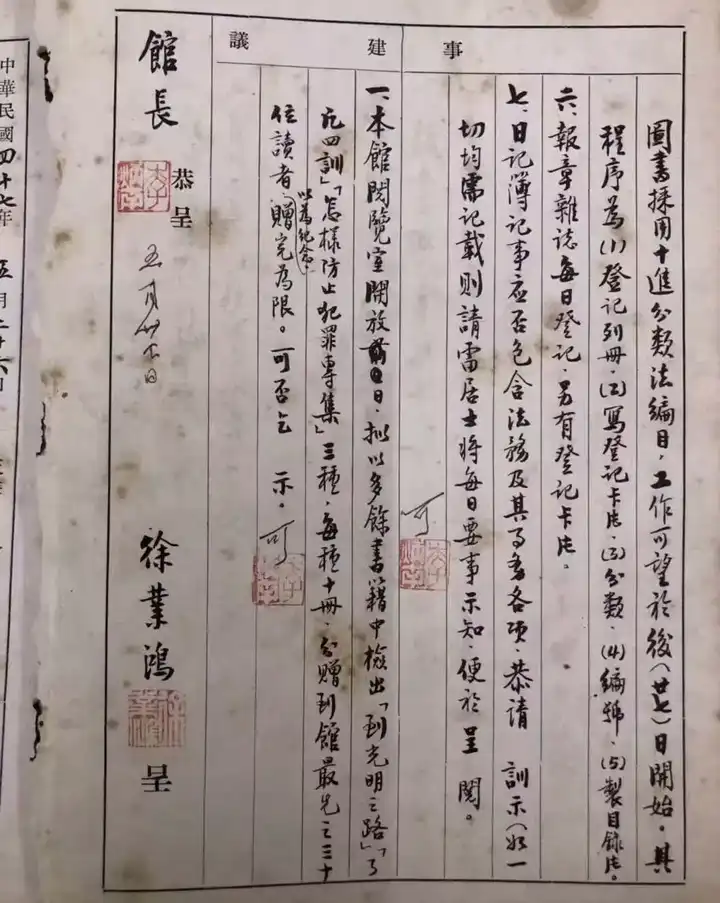 事
圖書採用十進分類法編目，工作可望於後（廿七）日開始。其
程序為(1)登記列冊．(2)寫登記卡片．(3)分類．(4)編號．(5)製目錄片。
六、報章雜誌每日登記．另有登記卡片。
七、日記簿記事应否包含法務及其他各項．恭請 訓示（如一
切均需記載則請雷居士將每日要事示知．便於呈閱。
可
建議
一、本館閱覽室開放日．拟以多餘書籍中檢出「到光明之路」「了
凡四訓」「怎樣防止犯罪專集」三種．每種十冊．分贈到館最先之三十
位讀者以為紀念．贈完為限。可否乞 示．
可
館長 恭呈
徐業鴻 呈
中華民國四十七年 五月二十六日